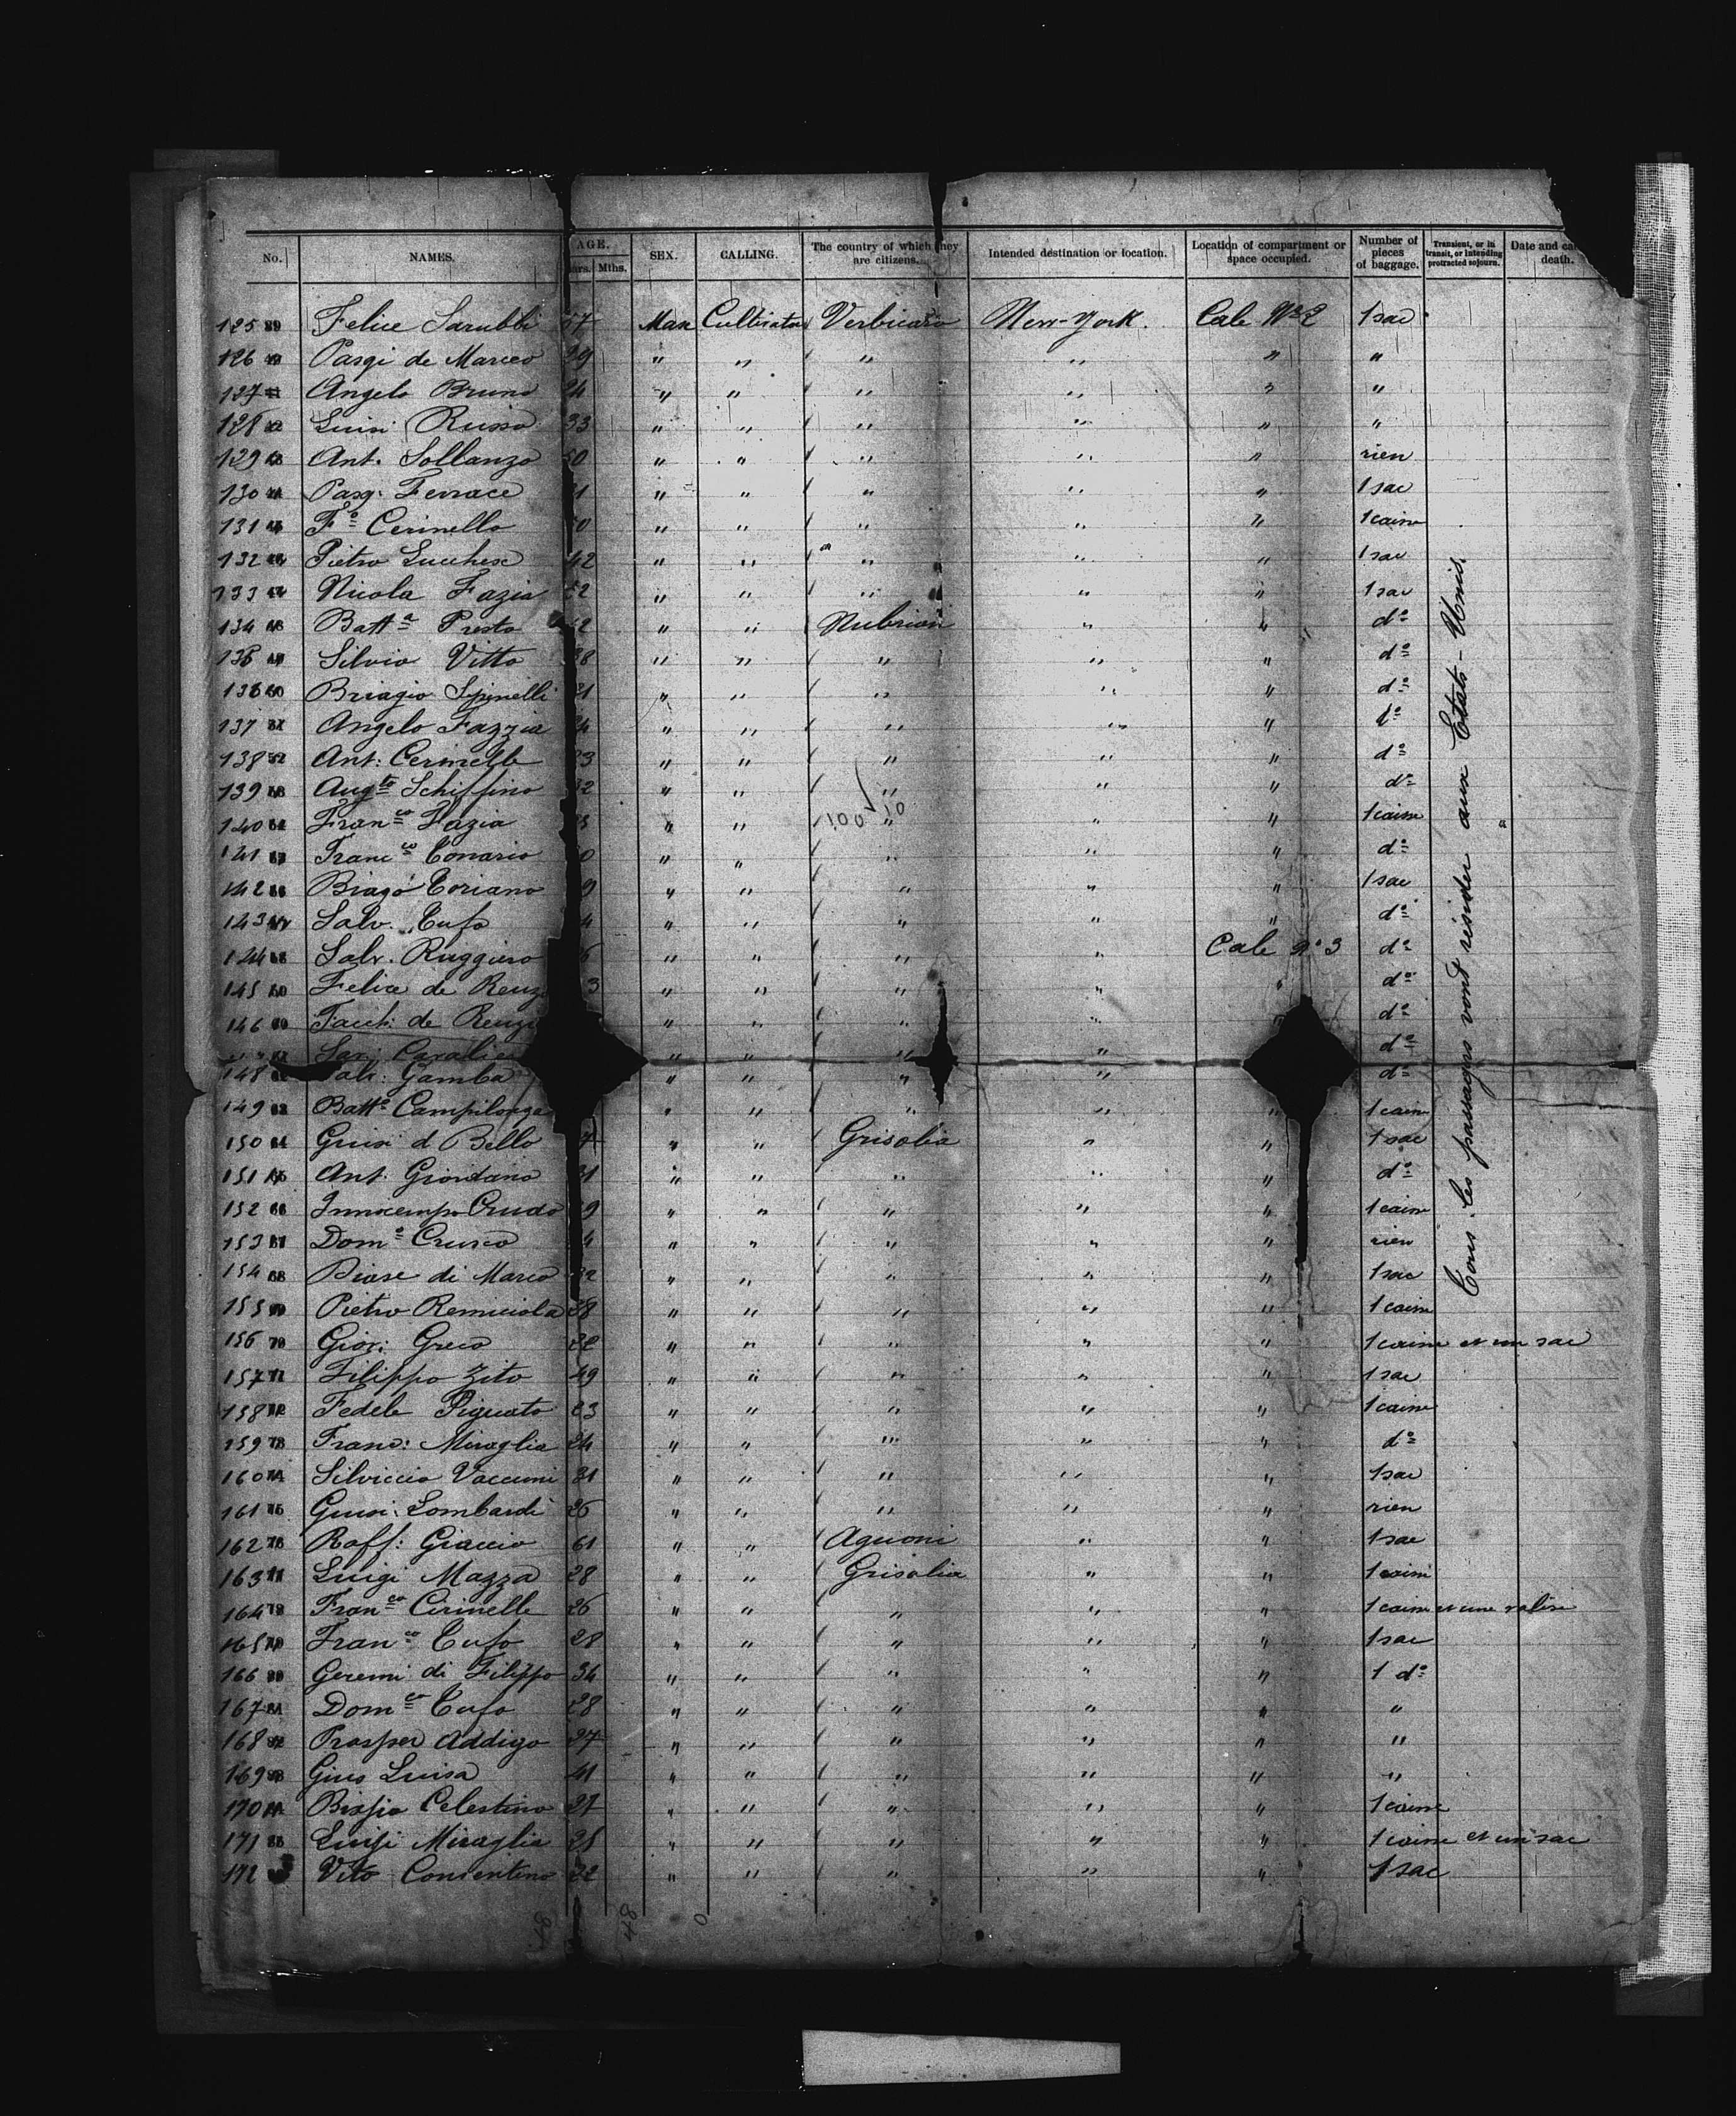 No. NAMES. AGE. SEX. CALLING. The country of which they are citizens. Intended destination or location. Location of compartment or space occupied. Number of pieces of baggage. Transient, or in transit, or intending protracted sojourn. Date and death.
Mths.
125 Felice Sarubbi 57 Man Cultivator Verbicaro New-York. Cale No 2 1 sac
126 Pasqi de Marco 39 " " " " " "
127 Angelo Bruno 24 " " " " " "
128 Luisi Russo 33 " " " " " "
129 Ant. Sollanzo 50 " " " " " rien
130 Pasq. Ferrace " " " " " 1 sac
131 Fo Cerinello " " " " " 1 caisse
132 Pietro Lucchese 42 " " " " " 1 sac
133 Nicola Fazia " " " " " 1 sac
134 Batta Presto " " " " do
135 Silvio Vitto " " " " " do
136 Briagio Spinelli " " " " " do
137 Angelo Fazzia " " " " " do
138 Ant: Cerinelle " " " " " do
139 Augto Schiffino " " " " " do
140 Franco Fazia " " " " " 1 caisse
141 Franco Conario " " " " " do
142 Biago Coriano " " " " " 1 sac
143 Salv. Cufo " " " " " do
144 Salv. Ruggiero " " " " Cale No 3 do
145 Felice de Renz " " " " " do
146 de Renzi " " " " do
Cavalie " " " " do
148 Gamba " " " " do
149 Batta Campilonga " " " " " 1 caisse
150 Giusi d Bello " " Grisolia " " 1 sac
151 Ant. Giordano 31 " " " " " do
152 Innocenzo Crudo " " " " " 1 caisse
153 Domo Crusco " " " " " rien
154 Biase di Marco 32 " " " " " 1 sac
155 Pietro Remiciola 38 " " " " " 1 caisse
156 Giov: Greco 32 " " " " " 1 caisse et un sac
157 Filippo Zito 49 " " " " " 1 sac
158 Fedele Pignato 23 " " " " " 1 caisse
159 Franc: Miraglia 24 " " " " " do
160 Silviccio Vaccimi 31 " " " " " 1 sac
161 Giusi: Lombardi 26 " " " " " rien
162 Raff: Giaccio 61 " " Aguoni " " 1 sac
163 Luigi Mazza 28 " " Grisolia " " 1 caisse
164 Franco Cirinelle 26 " " " " " 1 caisse et une valise
165 Franco Cufo 28 " " " " " 1 sac
166 Geremi di Filippo 34 " " " " " 1 do
167 Domco Cufo 28 " " " " " "
168 Prosper Addigo 27 " " " " " "
169 Gius Luisa 41 " " " " " "
170 Biagio Celestino 27 " " " " " 1 caisse
171 Luigi Miraglia 25 " " " " " 1 caisse et un sac
172 Vito Consentino 22 " " " " " 1 sac
Tous les passagers vont résider aux Etats-Unis.